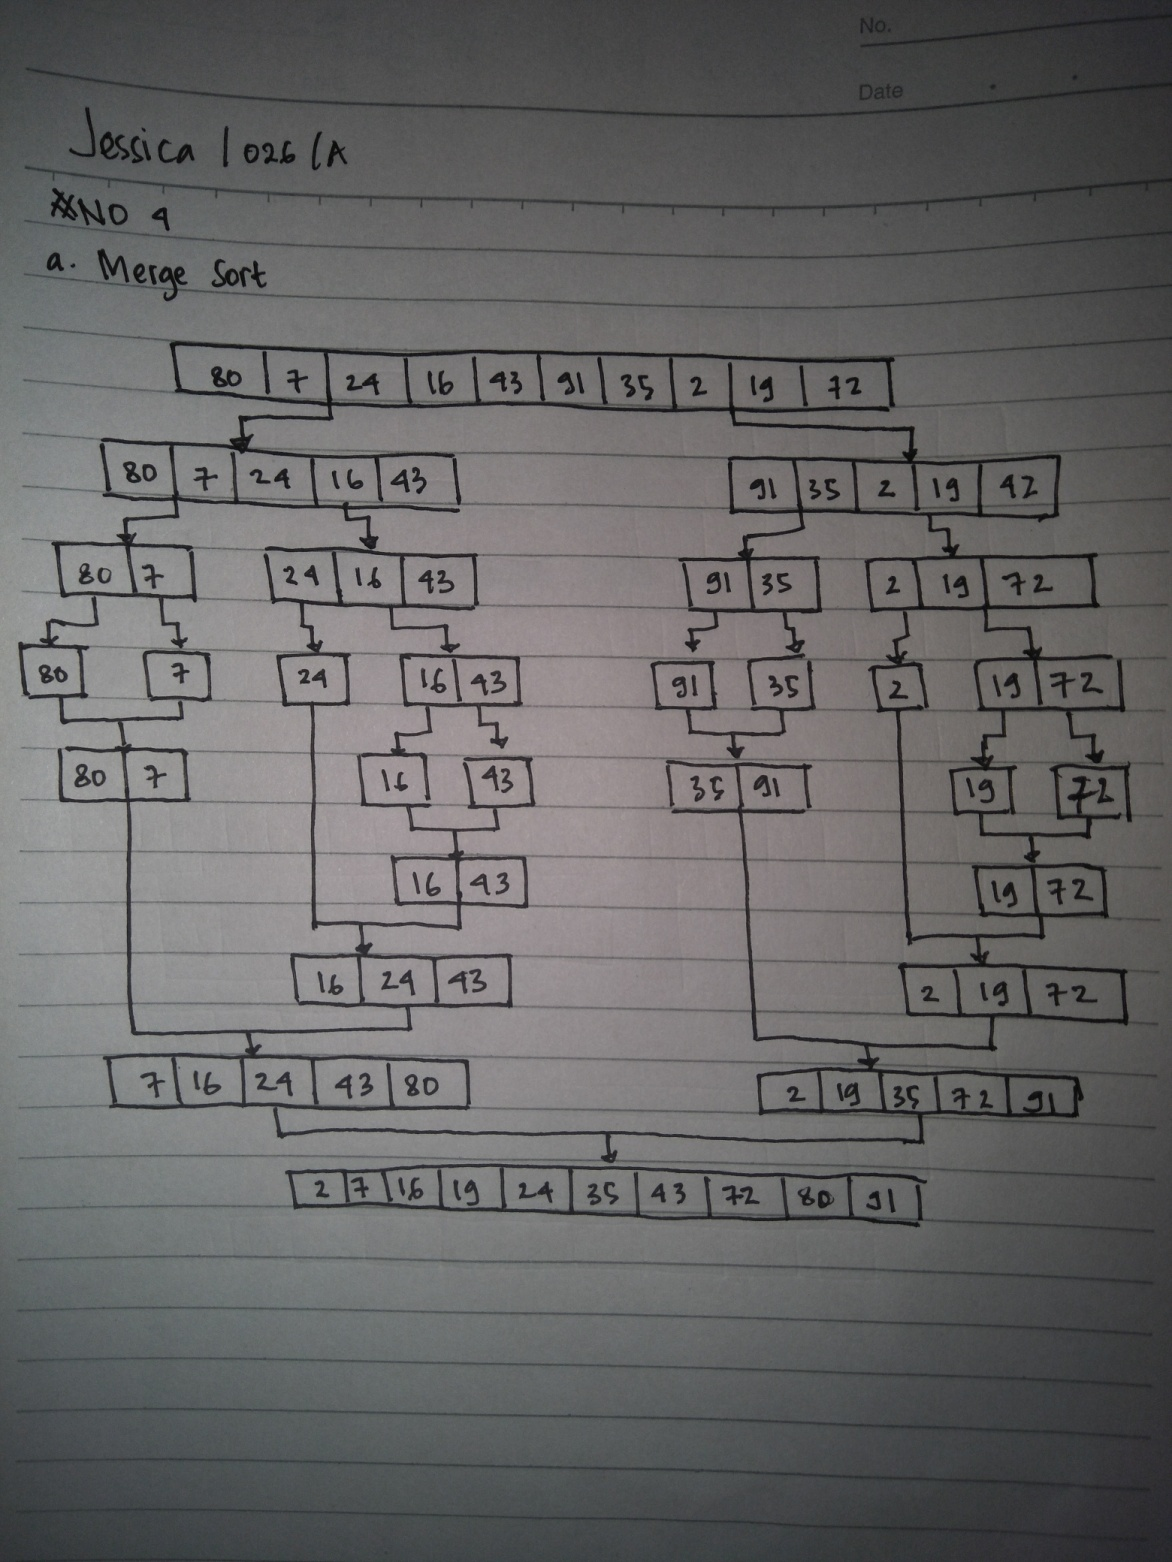 No.
Date
Jessica / 026 / A
NO 4
a. Merge Sort
80 7 24 16 43 91 35 2 19 72
80 7 24 16 43 91 35 2 19 42
80 7 24 16 43 91 35 2 19 72
80 7 24 16 43 91 35 2 19 72
80 7 16 43 35 91 19 72
16 43 19 72
16 24 43 2 19 72
7 16 24 43 80 2 19 35 72 91
2 7 16 19 24 35 43 72 80 91